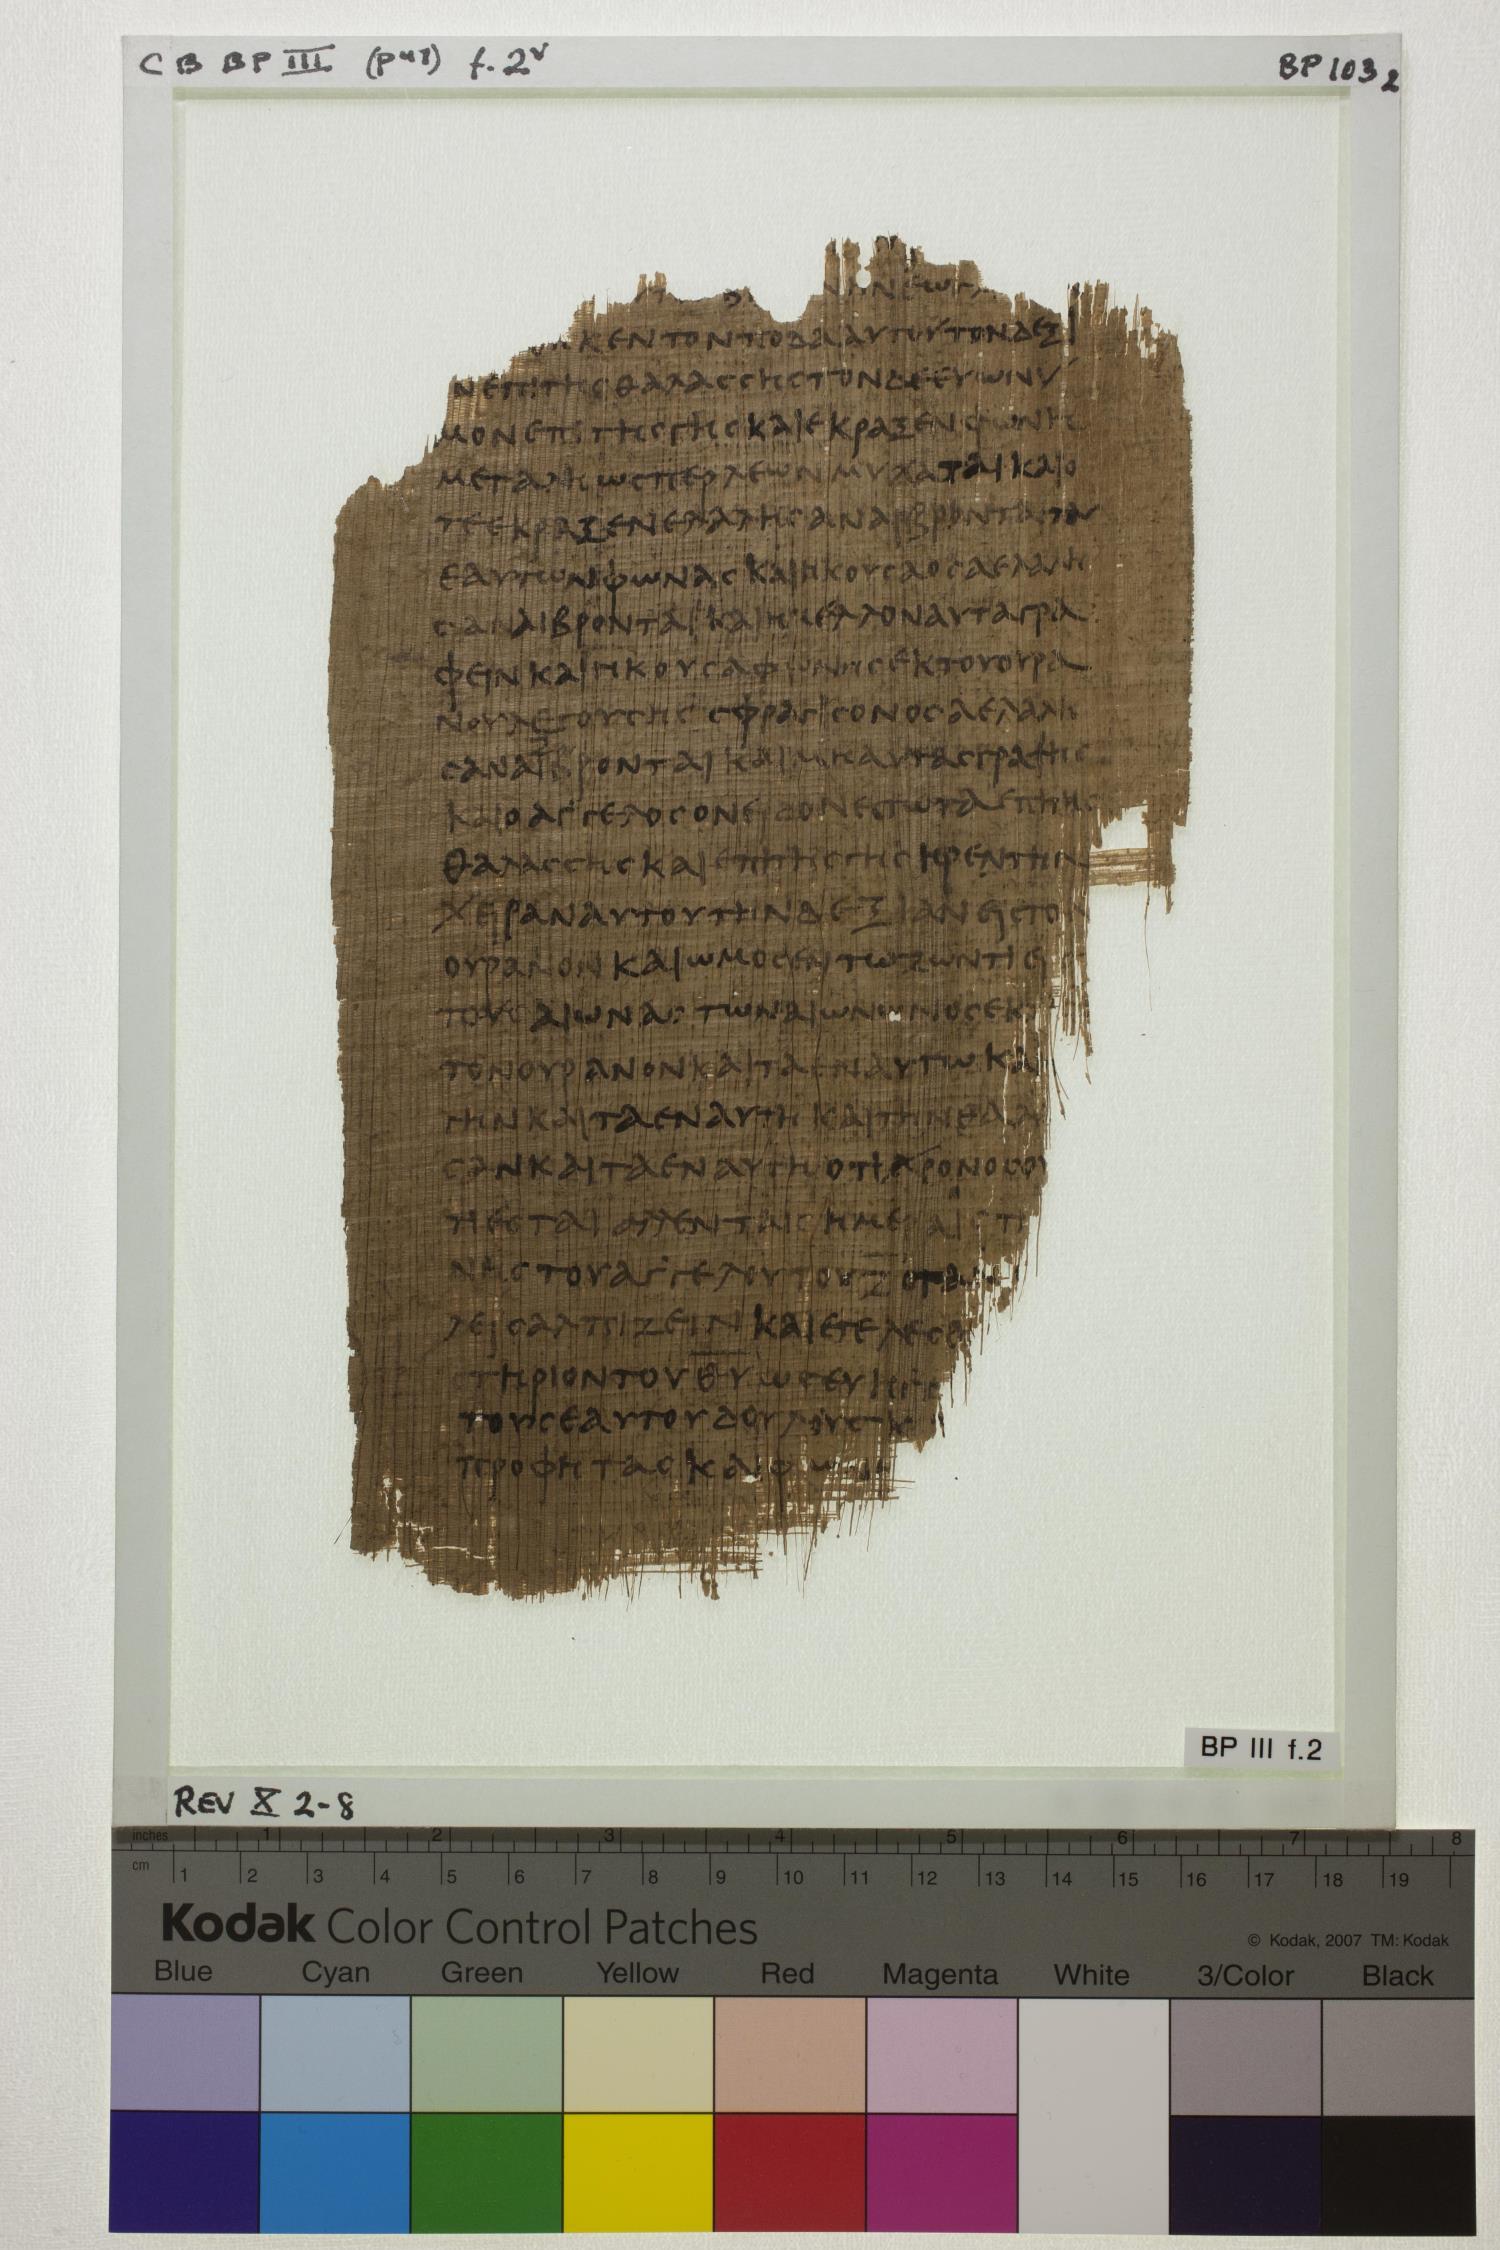 C B BP III (P47) f. 2v
BP 103 2
ΚΕΝΤΟΝΠΟΔΑΑΥΤΟΥΤΟΝΔΕΞΙ
ΝΕΠΙΤΗϹΘΑΛΑϹϹΗϹΤΟΝΔΕΕΥΩΝΥ
ΜΟΝΕΠΙΤΗϹΓΗϹΚΑΙΕΚΡΑΞΕΝΦΩΝΗ
ΜΕΓΑΛΗΩϹΠΕΡΛΕΩΝΜΥΚΑΤΑΙΚΑΙΟ
ΤΕΕΚΡΑΞΕΝΕΛΑΛΗϹΑΝΑΙΒΡΟΝΤΑΙΤΑϹ
ΕΑΥΤΩΝΦΩΝΑϹΚΑΙΗΚΟΥϹΑΟϹΑΕΛΑΛΗ
ϹΑΝΑΙΒΡΟΝΤΑΙΚΑΙΗΜΕΛΛΟΝΑΥΤΑΓΡΑ
ΦΕΙΝΚΑΙΗΚΟΥϹΑΦΩΝΗϹΕΚΤΟΥΟΥΡΑ
ΝΟΥΛΕΓΟΥϹΗϹϹΦΡΑΓΙϹΟΝΟϹΑΕΛΑΛΗ
ϹΑΝΑΙΖΒΡΟΝΤΑΙΚΑΙΜΗΑΥΤΑϹΓΡΑΨΗϹ
ΚΑΙΟΑΓΓΕΛΟϹΟΝΕΙΔΟΝΕϹΤΩΤΑΕΠΙΤΗϹ
ΘΑΛΑϹϹΗϹΚΑΙΕΠΙΤΗϹΓΗϹΗΡΕΝΤΗΝ
ΧΕΙΡΑΝΑΥΤΟΥΤΗΝΔΕΞΙΑΝΕΙϹΤΟΝ
ΟΥΡΑΝΟΝΚΑΙΩΜΟϹΕΝΤΩΖΩΝΤΙΕΙϹ
ΤΟΥϹΑΙΩΝΑϹΤΩΝΑΙΩΝΩΝΟϹΕΚ
ΤΟΝΟΥΡΑΝΟΝΚΑΙΤΑΕΝΑΥΤΩΚΑ
ΓΗΝΚΑΙΤΑΕΝΑΥΤΗΚΑΙΤΗΝΘΑΛΑ
ϹΑΝΚΑΙΤΑΕΝΑΥΤΗΟΤΙΧΡΟΝΟϹΟΥ
ΤΙΕϹΤΑΙΑΛΛΕΝΤΑΙϹΗΜΕΡΑΙϹΤΗ
ΝΗϹΤΟΥΑΓΓΕΛΟΥΤΟΥΖΟΤΑΝ
ΛΕΙϹΑΛΠΙΖΕΙΝΚΑΙΕΤΕΛΕϹΘ
ϹΤΗΡΙΟΝΤΟΥΘΥΩϹΕΥΗΓΓΕ
ΤΟΥϹΕΑΥΤΟΥΔΟΥΛΟΥϹΚ
ΠΡΟΦΗΤΑϹΚΑΙΦΩΝΗ
BP III f.2
REV X 2-8
inches 1 2 3 4 5 6 7 8
cm 1 2 3 4 5 6 7 8 9 10 11 12 13 14 15 16 17 18 19
Kodak Color Control Patches
© Kodak, 2007 TM: Kodak
Blue Cyan Green Yellow Red Magenta White 3/Color Black